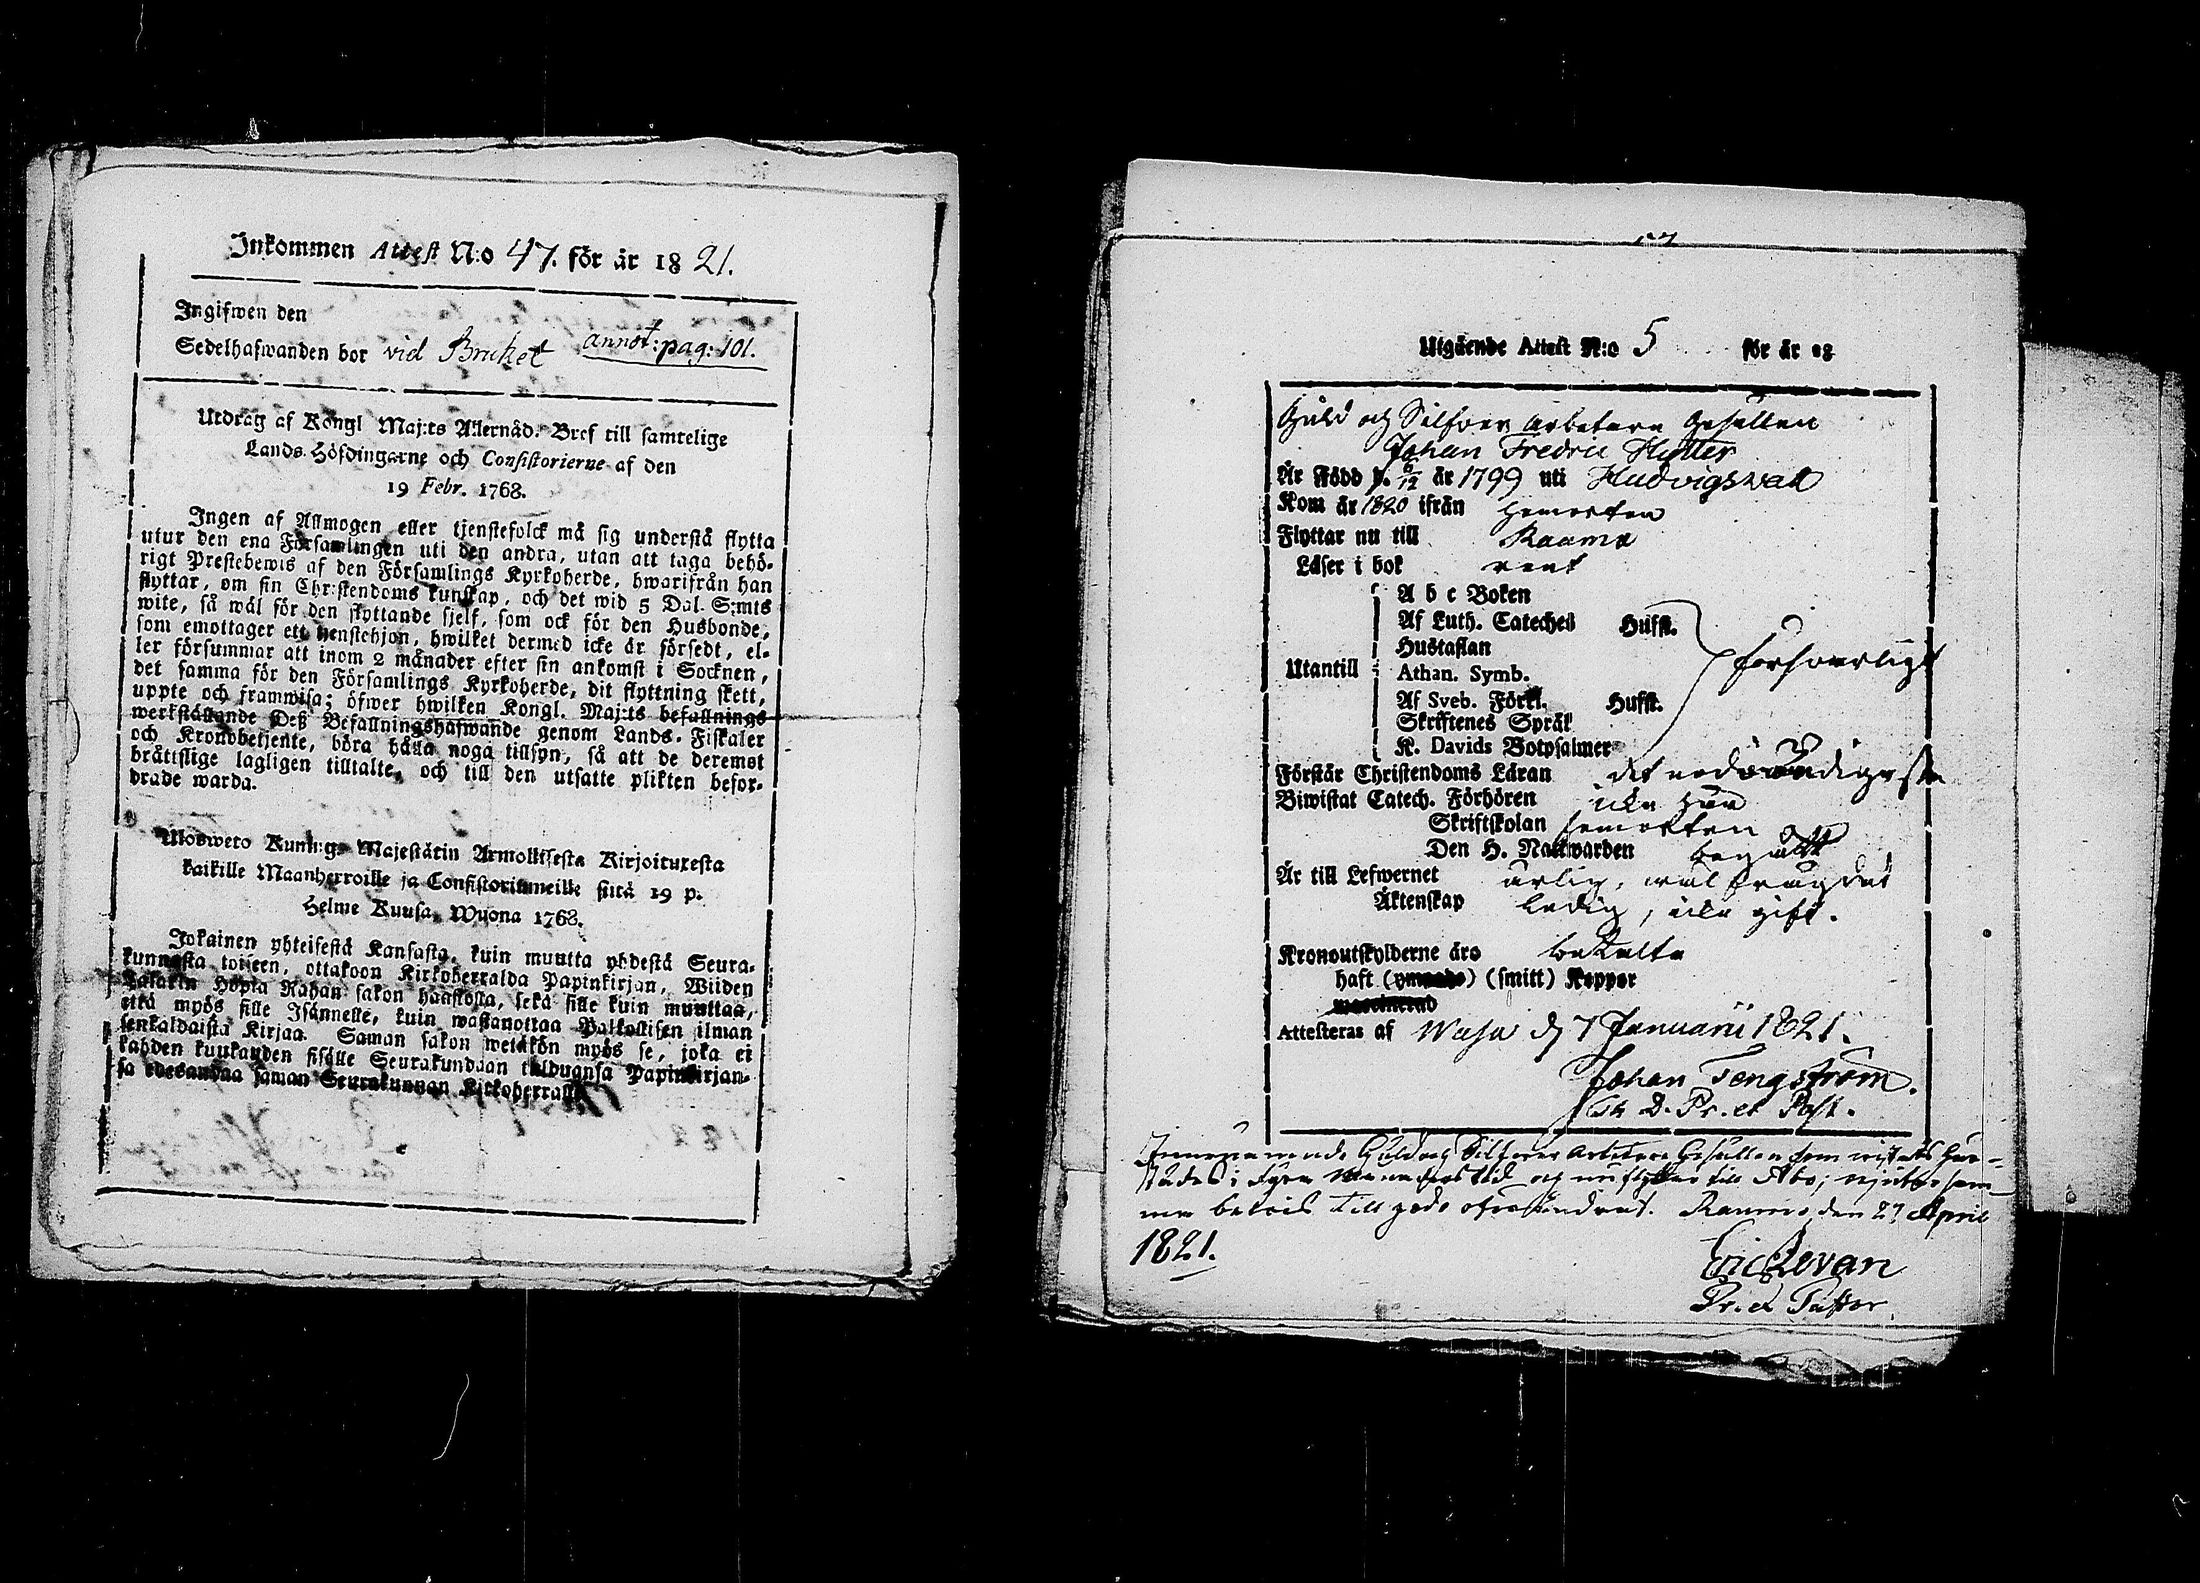 Inkommen Attest N:o 47. för år 1821.
Ingifwen den
Sedelhafwanden bor vid Bruket annot: pag: 101.
Utdrag af Kongl Maj:ts Allernåd. Bref till samtelige
Lands-Höfdingarne och Consistorierne af den
19 Febr. 1768.
Ingen af Allmogen eller tjenstefolck må sig understå flytta
utur den ena Församlingen uti den andra, utan att taga behö-
rigt Prestebewis af den Församlings Kyrkoherde, hwarifrån han
flyttar, om sin Christendoms kunskap, och det wid 5 Dal. S:mts
wite, så wäl för den flyttande sjelf, som ock för den Husbonde,
som emottager ett tjenstehjon, hwilket dermed icke är försedt, el-
ler försummar att inom 2 månader efter sin ankomst i Socknen,
det samma för den Församlings Kyrkoherde, dit flyttning skett,
uppte och framwisa; öfwer hwilken Kongl. Maj:ts befallnings
werkställande Deß Befallningshafwande genom Lands-Fiskaler
och Kronobetjente, böra hålla noga tillsyn, så att de deremot
bråttslige lagligen tilltalte, och till den utsatte plikten befor-
drade warda.
Ulosweto Kuning. Majestätin Armollisesta Kirjoituxesta
kaikille Maanherroille ja Consistoriumeille siitä 19 p.
Helme Kuusa, Wuona 1768.
Jokainen yhteisestä Kansasta, kuin muutta yhdestä Seura-
kunnasta toiseen, ottakoon Kirkoherralda Papinkirjan, Wiiden
Talarin Hopia Rahan sakon haastosta, sekä sille kuin muuttaa,
että myös sille Isännelle, kuin wastanottaa Palkollisen ilman
senkaldaista Kirjaa. Saman sakon wetäkön myös se, joka ei
kahden kuukauden sisälle Seurakundaan tulduansa Papinkirjan-
sa edesandaa saman Seurakunnan Kirkoherralle.
Utgående Attest N:o 5 för år 18
Guld och Silfver Arbetare Gesällen
Johan Fredric Hytter
Är Född d. 6/12 år 1799 uti Hudvigswall
Kom år 1820 ifrån Hemorten
Flyttar nu till Raumo
Läser i bok rent
A b c Boken
Af Luth. Cateches Hufst.
Hustaflan
Utantill Athan. Symb. försvarligt
Af Sveb. Förkl. Hufst.
Skriftenes Språk
K. Davids Botpsalmer
Förstår Christendoms Läran det nödvändigaste
Biwistat Catech. Förhören icke här
Skriftskolan hemorten
Den H. Nattwarden begått
Är till Lefwernet ärlig, wäl frägdat
Äktenskap ledig, icke gift.
Kronoutskylderne äro betalte
haft (ympade) (smitt) Koppor
Attesteras af Wasa d 7 Januarii 1821.
Johan Tengström.
Th D. Pr. et Past.
Innevarnande Guld och Silfver Arbetare Gesällen som vistats här-
städes i fyra Månaders tid och nu flyttar till Åbo; njuter sam-
ma betvis till godo oförändrat. Raumo den 27 April
1821.
Eric Levan
Pr. et Pastor